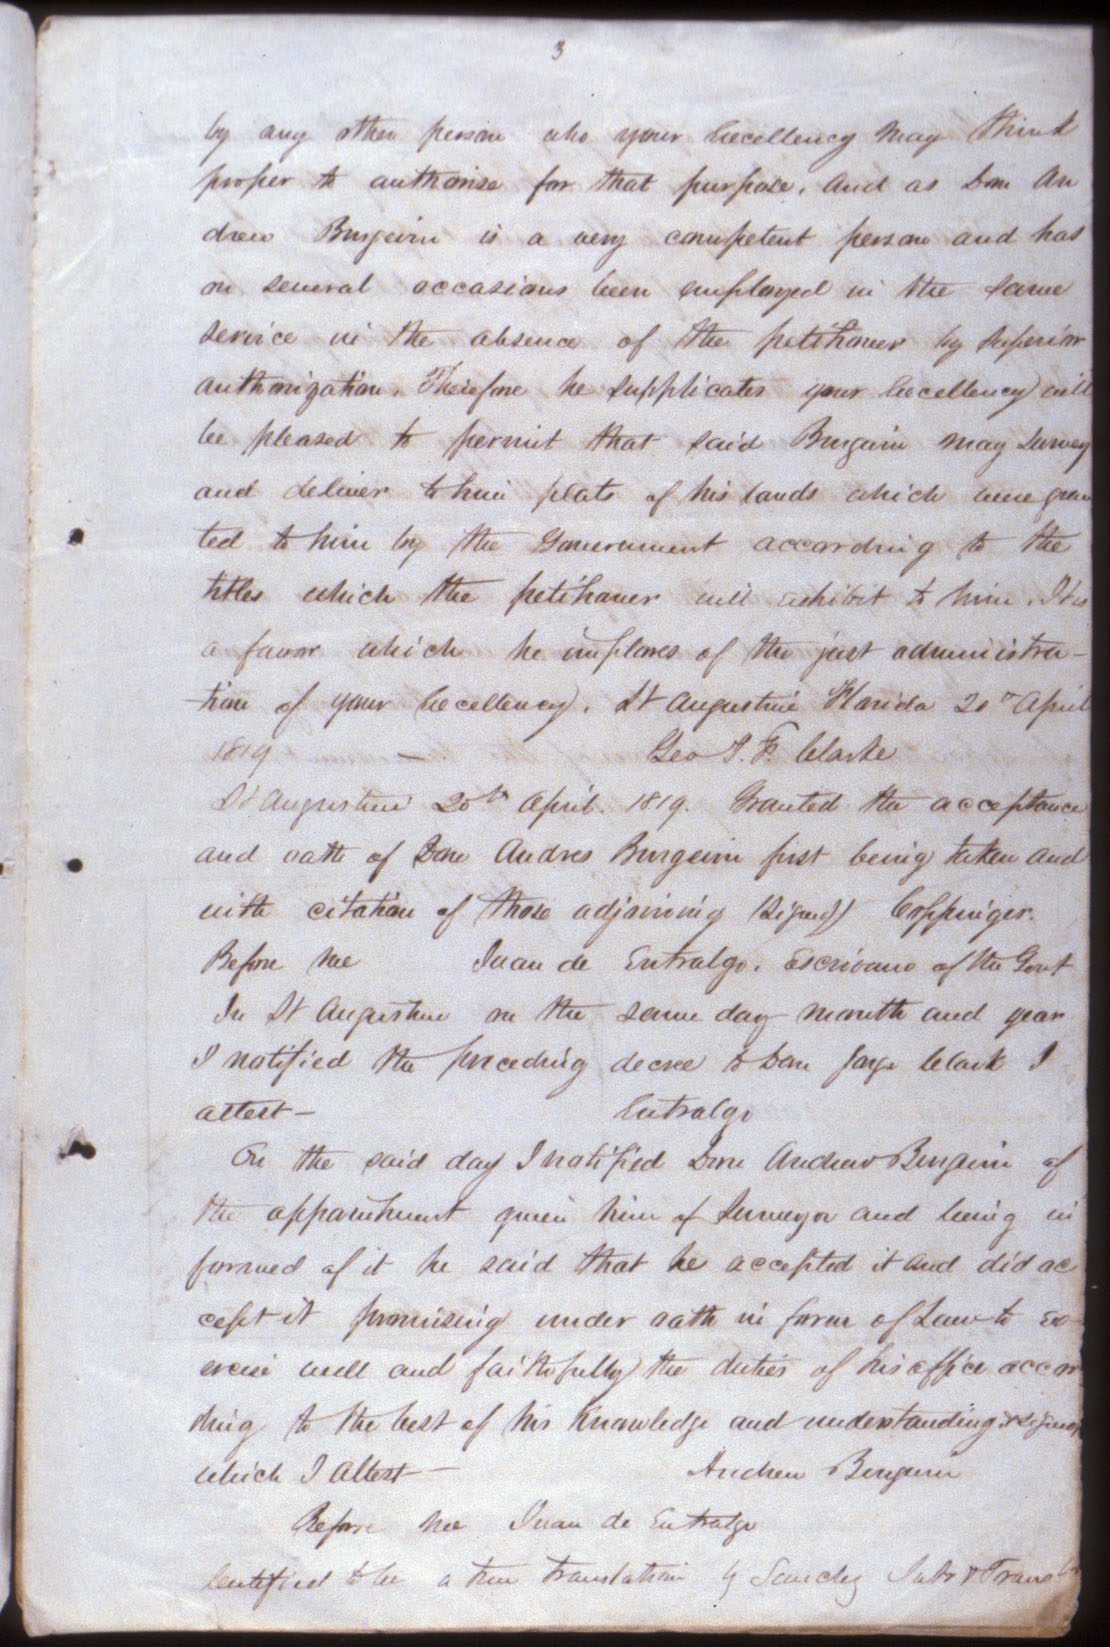 3
by any other person who your Excellency may think
proper to authorise for that purpose. And as Don An
drew Burgevin is a very competent person and has
on several occasions been employed in the same
service in the absence of the petitioner by superior
authorization. Therefore he supplicates your Excellency will
be pleased to permit that said Burgevin may survey
and deliver to him plats of his lands which were gran
ted to him by the Government according to the
titles which the petitioner will exhibit to him. It is
a favor which he implores of the just administra-
tion of your Excellency. St Augustine Florida 20th April
1819 — Geo J. F. Clarke
St Augustine 20th April. 1819. Granted the acceptance
and oath of Don Andres Burgevin first being taken and
with citation of those adjoining (Signed) Coppinger.
Before me Juan de Entralgo. Escrivano of the Govt
In St Augustine on the same day month and year
I notified the preceding decree to Don Jorge Clark I
attest — Entralgo
On the said day I notified Don Andrew Burgevin of
the appointment given him of Surveyor and being in
formed of it he said that he accepted it and did ac
cept it promising under oath in form of Law to ex-
ercise well and faithfully the duties of his office accor
ding to the best of his knowledge and understanding & signed
which I attest — Andrew Burgevin
Before me Juan de Entralgo
Certified to be a true translation by Sanchez